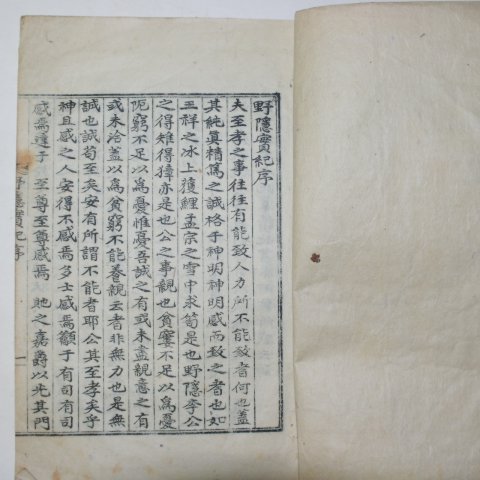 野隱實紀序
夫至孝之事往往有能致人力所不能致者何也蓋
其純眞精篤之誠格于神明神明感而致之者也如
王祥之冰上獲鯉孟宗之雪中求筍是也野隱李公
之得雉得獐亦是也公之事親也貧窶不足以爲憂
阨窮不足以爲憂惟憂吾誠之有或未盡親意之有
或未洽蓋以爲貧窮不能養親云者非無力也是無
誠也誠苟至矣安有所謂不能者耶公其至孝矣乎
神且感之人安得不感焉多士感焉籲于有司有司
感焉達于 至尊至尊感焉 貤之嘉爵以光其門
野隱實紀序 一